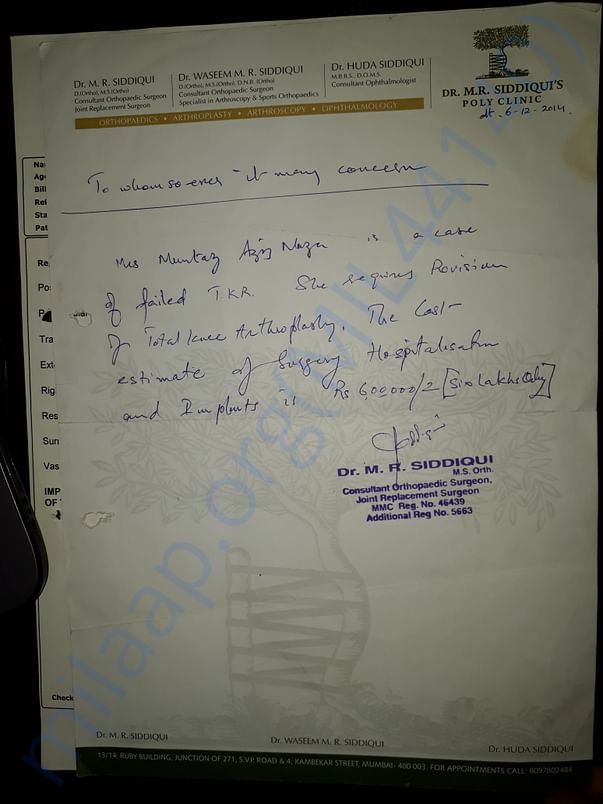 Dr. M. R. SIDDIQUI
D.(Ortho), M.S.(Ortho)
Consultant Orthopaedic Surgeon
Joint Replacement Surgeon
Dr. WASEEM M. R. SIDDIQUI
D.(Ortho), M.S.(Ortho), D.N.B. (Ortho)
Consultant Orthopaedic Surgeon
Specialist in Arthroscopy & Sports Orthopaedics
Dr. HUDA SIDDIQUI
M.B.B.S., D.O.M.S.
Consultant Ophthalmologist
DR. M.R. SIDDIQUI'S
POLY CLINIC
ORTHOPAEDICS • ARTHROPLASTY • ARTHROSCOPY • OPHTHALMOLOGY
dt. 6-12-2014.
To whom so ever it many concern
Mrs Mumtaz Aziz is a case
of failed T.K.R. She requires Revision
of Total knee Arthroplasty. The Cost
estimate of Surgery Hospitalisation
and Implants is Rs 6,00,000/= [Six Lakhs Only]
Dr. M. R. SIDDIQUI
M.S. Orth.
Consultant Orthopaedic Surgeon,
Joint Replacement Surgeon
MMC Reg. No. 46439
Additional Reg No. 5663
Na
Ag
Bill
Rel
Sta
Pat
Re
Po
P
Tra
Ext
Rig
Res
Sun
Vas
IMP
OF
Check
Dr. M. R. SIDDIQUI
Dr. WASEEM M. R. SIDDIQUI
Dr. HUDA SIDDIQUI
13/14, RUBY BUILDING, JUNCTION OF 271, S.V.P. ROAD & 4, KAMBEKAR STREET, MUMBAI- 400 003. FOR APPOINTMENTS CALL: 8097802484